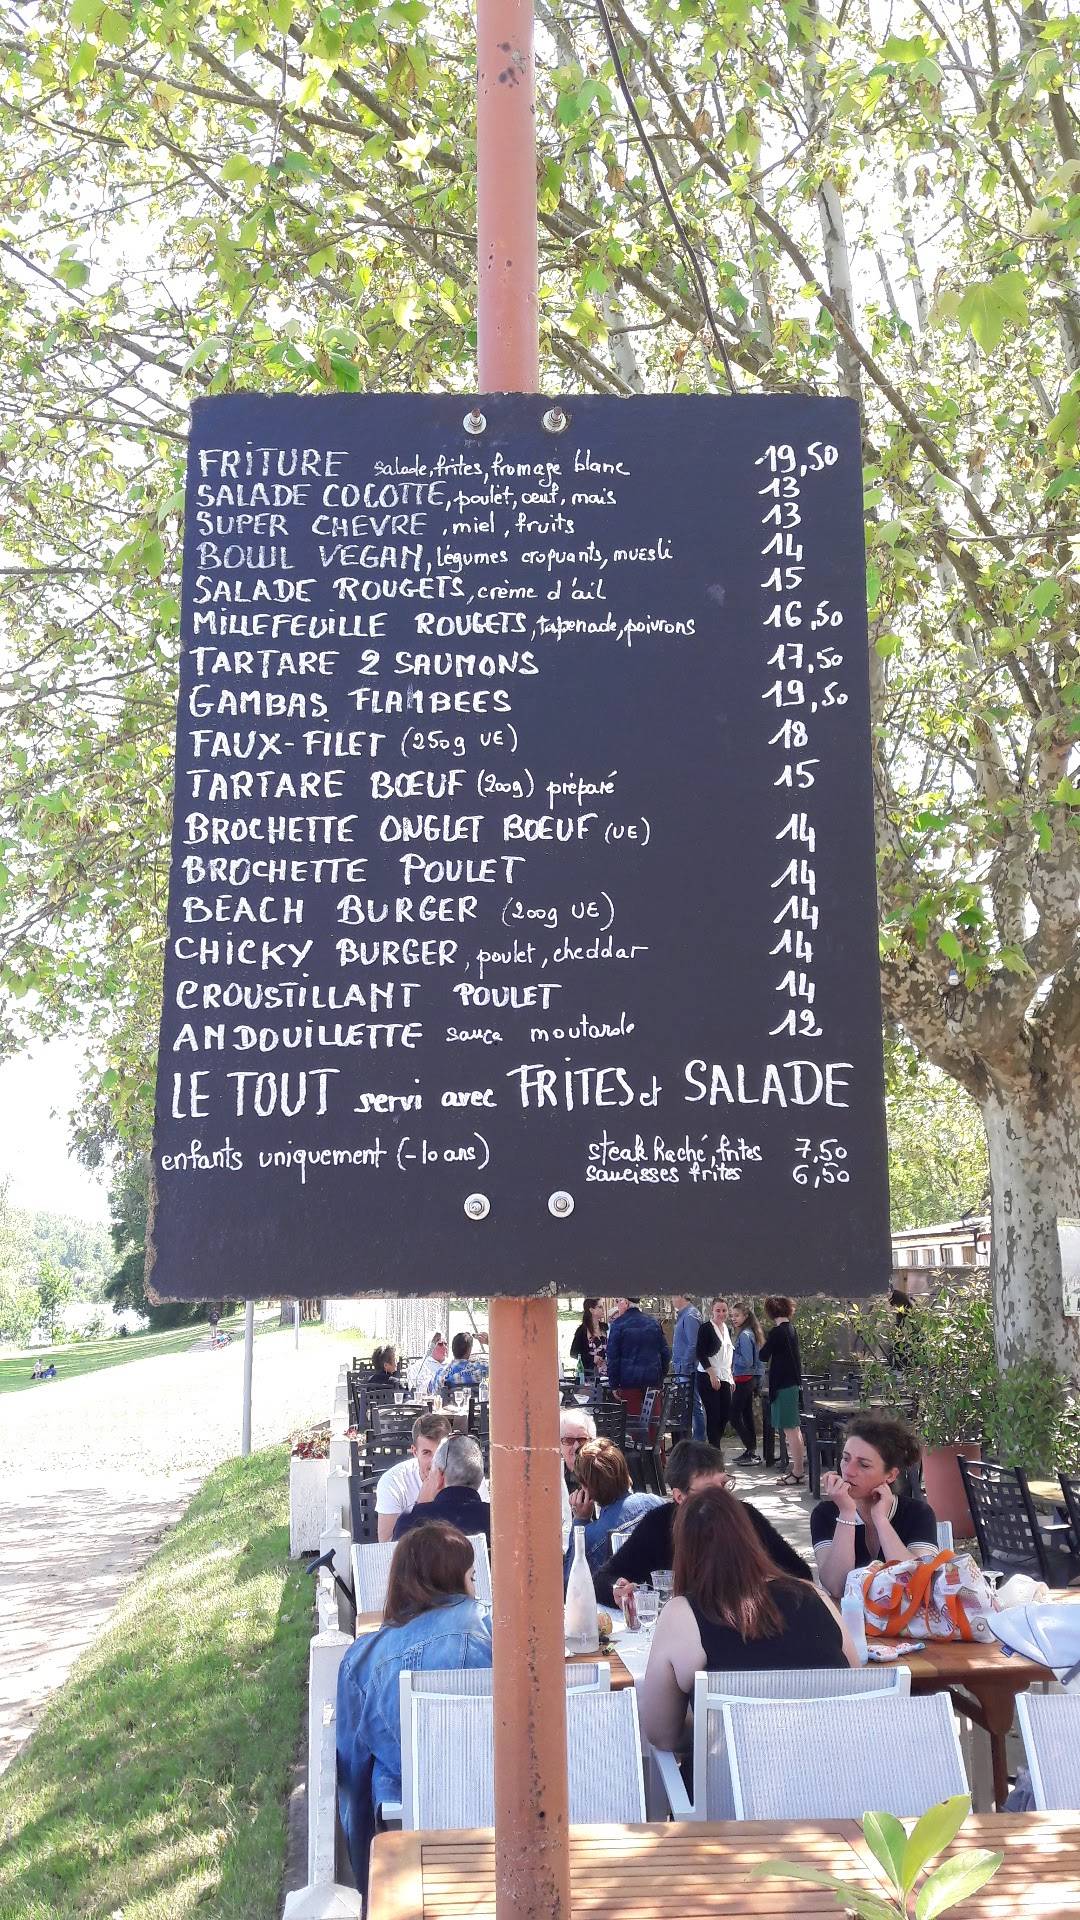 FRITURE salade, frites, fromage blanc 19,50
SALADE COCOTTE, poulet, œuf, mais 13
SUPER CHEVRE, miel, fruits 13
BOWL VEGAN, légumes croquants, muesli 14
SALADE ROUGETS, crème d'ail 15
MILLEFEUILLE ROUGETS, tapenade, poivrons 16,50
TARTARE 2 SAUMONS 17,50
GAMBAS FLAMBEES 19,50
FAUX-FILET (250g UE) 18
TARTARE BŒUF (200g) préparé 15
BROCHETTE ONGLET BOEUF (UE) 14
BROCHETTE POULET 14
BEACH BURGER (200g UE) 14
CHICKY BURGER, poulet, cheddar 14
CROUSTILLANT POULET 14
ANDOUILLETTE sauce moutarde 12
LE TOUT servi avec FRITES et SALADE
enfants uniquement (-10 ans) steak haché, frites 7,50
saucisses frites 6,50